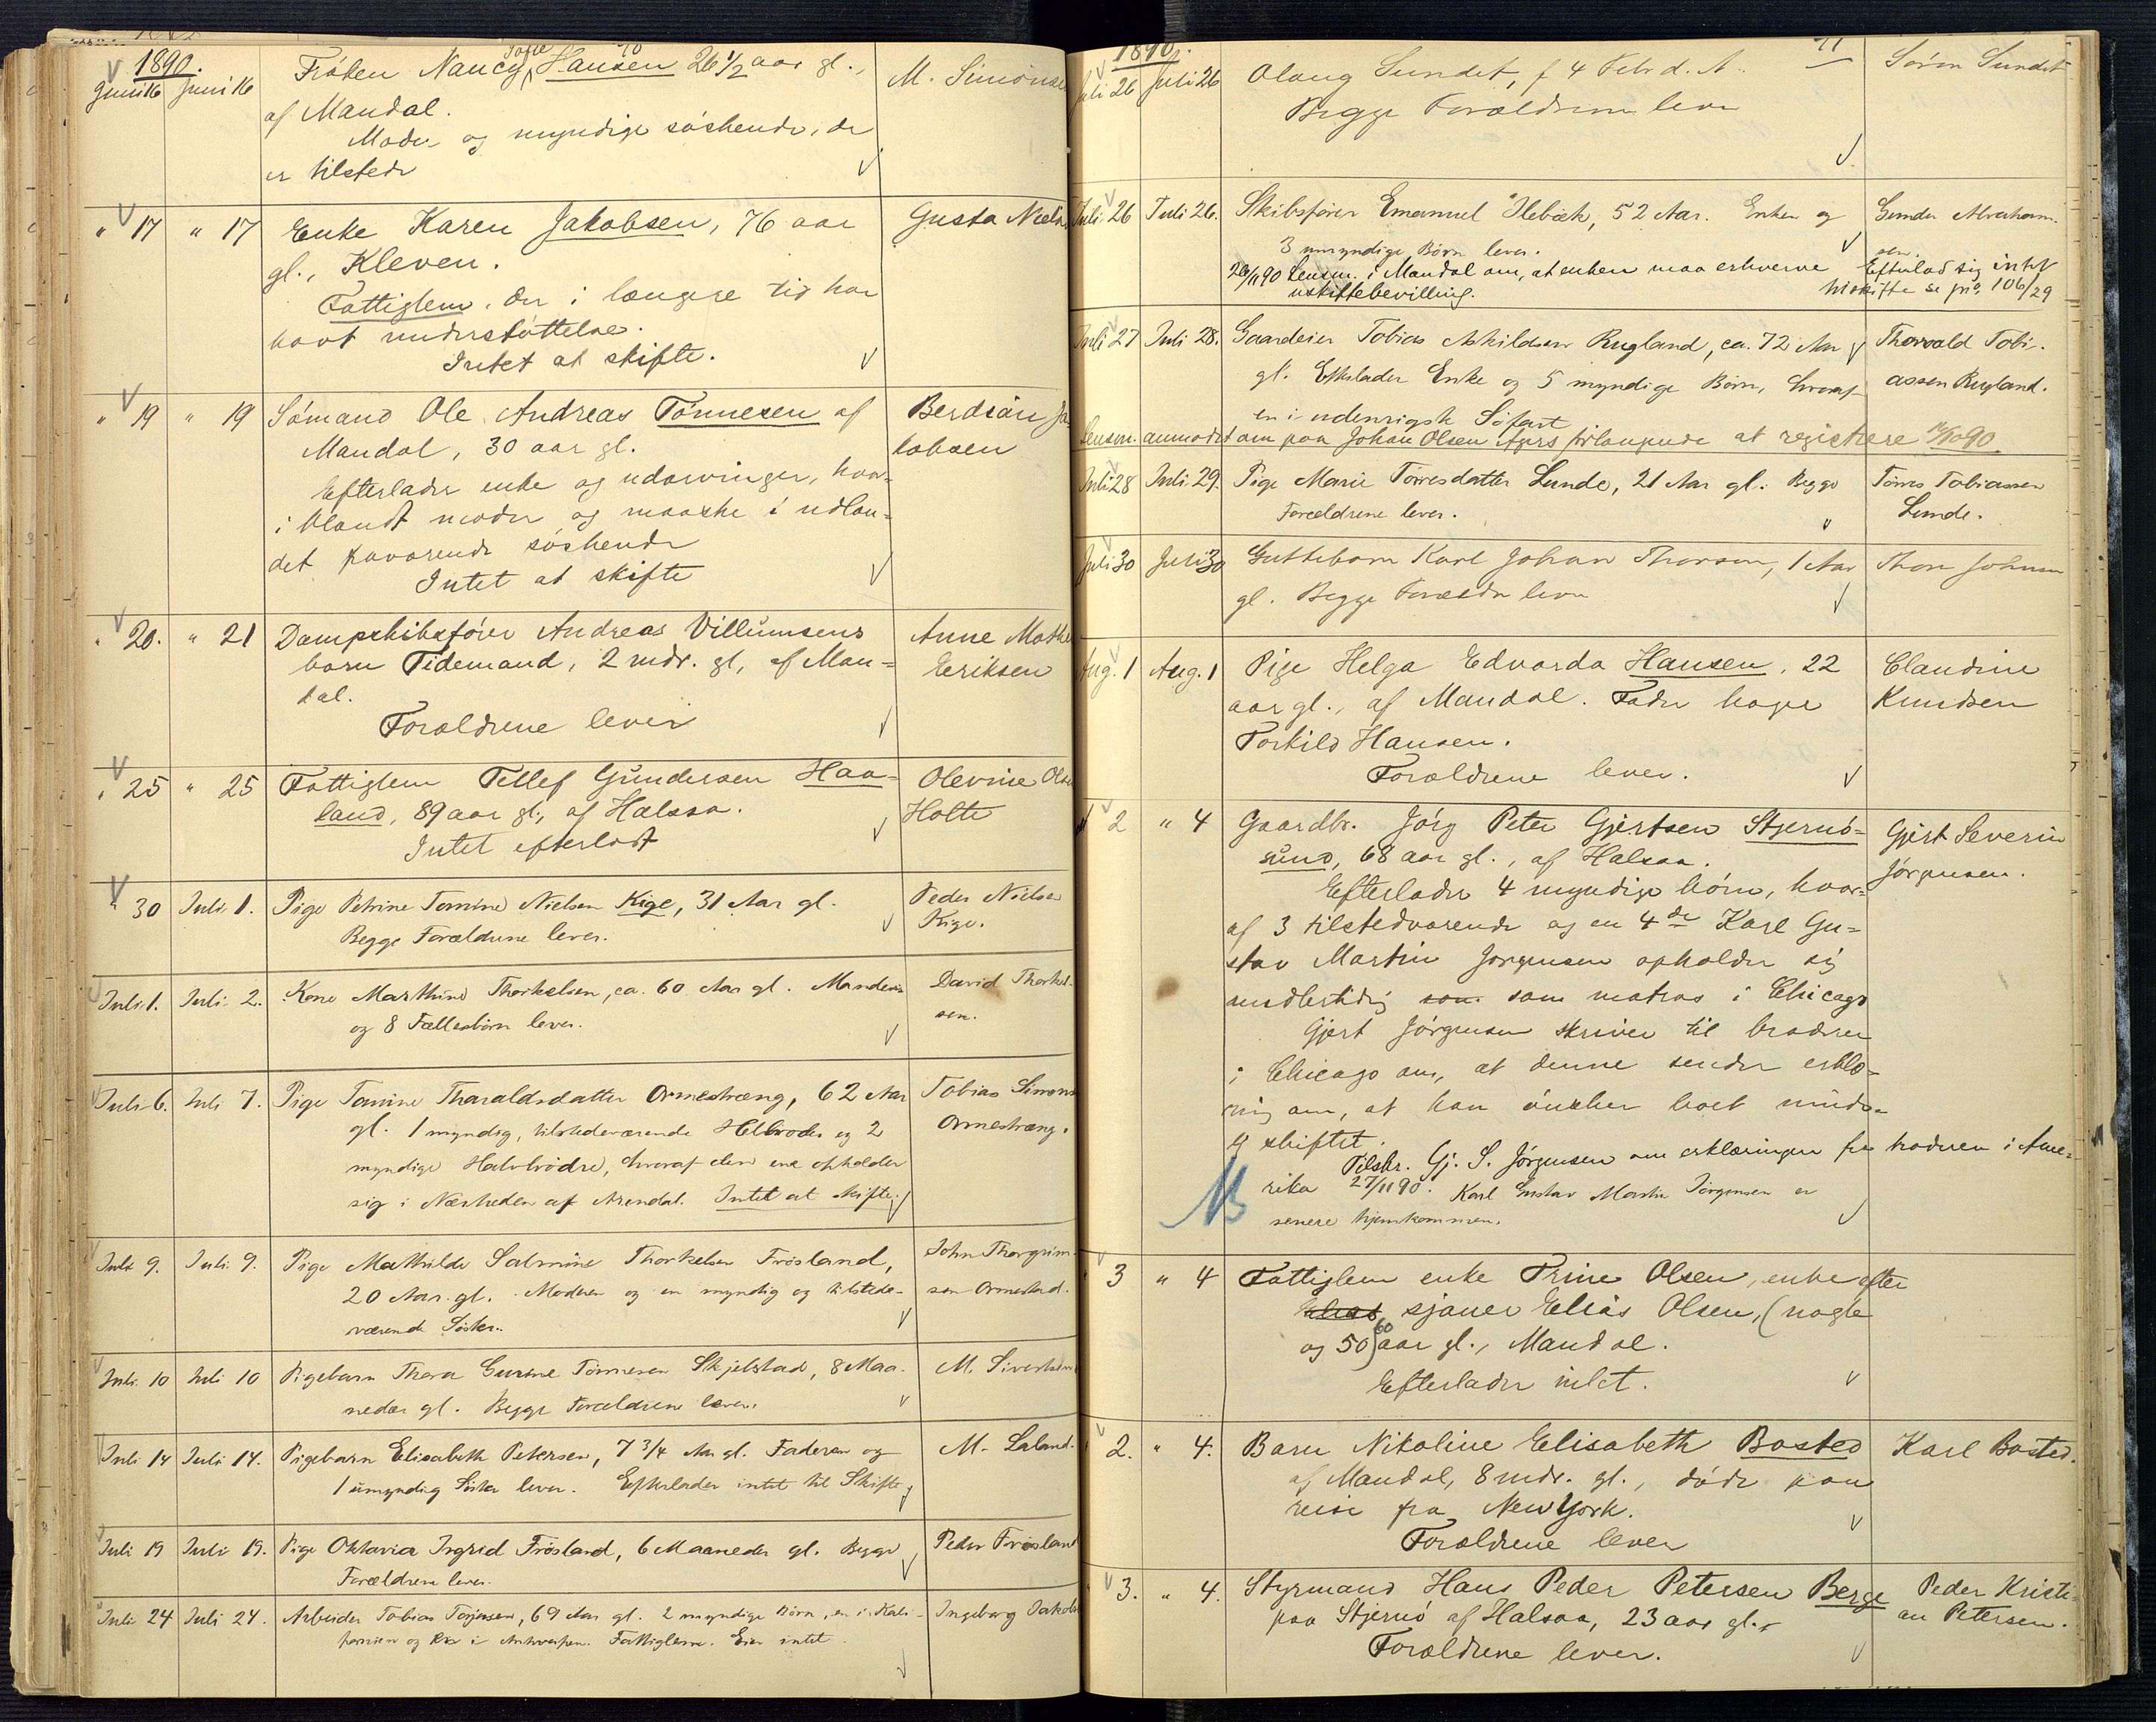 1890.
Juni 16 Juni 16 Frøken Nancy Sofie Hansen 26 1/2 aar gl., M. Simonsen
af Mandal.
Moder og myndige søskende, der
er tilstede
" 17 " 17 Enke Karen Jakobsen, 76 aar Gusta Niels
gl., Kleven.
Fattiglem, der i længere tid har
havt understøttelse.
Intet at skifte.
" 19 " 19 Sømand Ole Andreas Tønnesen af Berdsån Ja
Mandal, 30 aar gl. kobsen
Efterlader enke og udarvinger, hvor-
iblandt moder og maaske i udlan-
det faværende søskende
Intet at skifte
" 20. " 21 Dampskibsfører Andreas Villumsens Anne Mathe
barn Tidemand, 2 mdr. gl., af Man= Eriksen
dal.
Forældrene lever
" 25 " 25 Fattiglem Tellef Gundersen Haa= Olevine Olsen
land, 89 aar gl., af Halsaa. Holte
Intet efterladt
" 30 Juli 1. Pige Petrine Tomine Nielsen Kige, 31 Aar gl. Peder Nielsen
Begge Forældrene lever. Kige.
Juli 1. Juli 2. Kone Marthine Thorkelsen, ca. 60 Aar gl. Manden David Thorkel-
og 8 Fællesbørn lever. sen.
Juli 6. Juli 7. Pige Tomine Tharaldsdatter Ormestræng, 62 Aar Tobias Simons
gl. 1 myndig, tilstedeværende Helbroder og 2 Ormestræng.
myndige Halvbrødre, hvoraf den ene opholder
sig i Nærheden af Arendal. Intet at skifte.
Juli 9. Juli 9. Pige Mathilde Salmine Thorkelsen Frøsland, John Thorgrim-
20 Aar gl. Moderen og en myndig og tilstede- sen Ormestad.
værende Søster.
Juli 10 Juli 10 Pigebarn Thora Gurine Tønnesen Skjelstad, 8 Maa- M. Sivertsen
neder gl. Begge Forældrene lever.
Juli 14 Juli 14. Pigebarn Elisabeth Petersen, 7 3/4 Aar gl. Faderen og M. Laland.
1 umyndig Søster lever. Efterlader intet til Skifte
Juli 19 Juli 19. Pige Oktavia Ingrid Frøsland, 6 Maaneder gl. Begge Peder Frøsland
Forældrene lever.
Juli 24 Juli 24. Arbeider Tobias Torjusen, 69 Aar gl. 2 myndige Børn, en i Kali- Ingeborg Jakobs
fornien og En i Antwerpen. Fattiglem. Eier intet.
1890. 71
Juli 26 Juli 26 Olaug Sundet, f 4 Febr d. A. Søren Sundet
Begge Forældrene lever
Juli 26 Juli 26. Skibsfører Emanuel Ilebæk, 52 Aar. Enken og Gunder Abraham-
3 umyndige Børn lever. sen.
26/11 90 Lensm. i Mandal om, at enken maa erhverve Efterlod sig intet
uskiftebevilling. til skifte se pio. 106/29
Juli 27 Juli 28. Gaardeier Tobias Askildsen Rugland, ca. 72 Aar Thorvald Tobi-
gl. Efterlader Enke og 5 myndige Børn, hvoraf assen Rugland.
en i udenrigsk Søfart
Lensm. anmodet om paa Johan Olsen Ågers forlangende at registrere 14/10 90.
Juli 28 Juli 29. Pige Marie Tørresdatter Lunde, 21 Aar gl. Begge Tørres Tobiassen
Forældrene lever. Lunde.
Juli 30 Juli 30 Guttebarn Karl Johan Thorsen, 1 Aar Thore Johnsen
gl. Begge Forældre lever
Aug. 1 Aug. 1 Pige Helga Edvarda Hansen, 22 Claudine
aar gl., af Mandal. Fader bager Knudsen
Torkild Hansen.
Forældrene lever.
" 2 " 4 Gaardbr. Jørg Peter Gjertsen Stjernø= Gjert Severin
sund, 68 aar gl., af Halsaa. Jørgensen.
Efterlader 4 myndige børn, hvor-
af 3 tilstedværende og en 4de Karl Gu=
stav Martin Jørgensen opholder sig
midlertidig som som matros i Chicago
Gjert Jørgensen skriver til broderen
i Chicago om, at denne sender erklæ-
ring om, at han ønsker boet unddra-
get skiftet.
Tilskr. Gj. S. Jørgensen om erklæringen fra broderen i Ame=
rika 27/11 90. Karl Gustav Martin Jørgensen er
senere hjemkommen.
" 3 " 4 Fattiglem enke Trine Olsen, enke efter
Elias sjauer Elias Olsen, (nogle
og 50) 60 aar gl., Mandal.
Efterlader intet.
" 2. " 4. Barn Nikoline Elisabeth Bosted Karl Bosted.
af Mandal, 8 mdr. gl., døde paa
reise fra New York.
Forældrene lever
" 3. " 4. Styrmand Hans Peder Petersen Berge Peder Kristi-
paa Stjernø af Halsaa, 23 aar gl. an Petersen.
Forældrene lever.